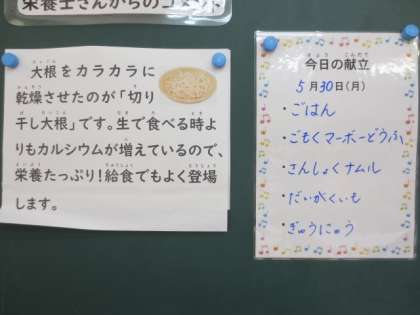 栄養士さんからのコメント
大根をカラカラに
乾燥させたのが「切り
干し大根」です。生で食べる時よ
りもカルシウムが増えているので、
栄養たっぷり！給食でもよく登場
します。
今日の献立
5月30日(月)
・ごはん
・ごもくマーボーどうふ
・さんしょくナムル
・だいがくいも
・ぎゅうにゅう